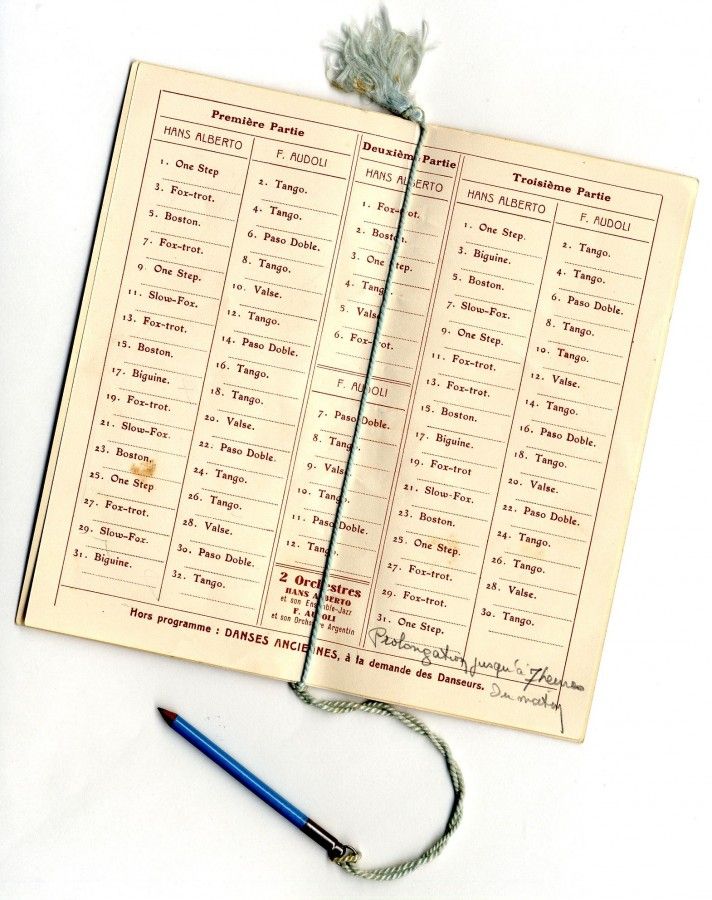 Première Partie
HANS ALBERTO
1. One Step
3. Fox-trot.
5. Boston.
7. Fox-trot.
9. One Step.
11. Slow-Fox.
13. Fox-trot.
15. Boston.
17. Biguine.
19. Fox-trot.
21. Slow-Fox.
23. Boston.
25. One Step
27. Fox-trot.
29. Slow-Fox.
31. Biguine.
F. AUDOLI
2. Tango.
4. Tango.
6. Paso Doble.
8. Tango.
10. Valse.
12. Tango.
14. Paso Doble.
16. Tango.
18. Tango.
20. Valse.
22. Paso Doble.
24. Tango.
26. Tango.
28. Valse.
30. Paso Doble.
32. Tango.
Deuxième Partie
HANS ALBERTO
1. Fox-trot.
2. Boston.
3. One Step.
4. Tango.
5. Valse.
6. Fox-trot.
F. AUDOLI
7. Paso Doble.
8. Tango.
9. Valse.
10. Tango.
11. Paso Doble.
12. Tango.
2 Orchestres
HANS ALBERTO
et son Ensemble-Jazz
F. AUDOLI
et son Orchestre Argentin
Troisième Partie
HANS ALBERTO
1. One Step.
3. Biguine.
5. Boston.
7. Slow-Fox.
9. One Step.
11. Fox-trot.
13. Fox-trot.
15. Boston.
17. Biguine.
19. Fox-trot
21. Slow-Fox.
23. Boston.
25. One Step.
27. Fox-trot.
29. Fox-trot.
31. One Step.
F. AUDOLI
2. Tango.
4. Tango.
6. Paso Doble.
8. Tango.
10. Tango.
12. Valse.
14. Tango.
16. Paso Doble.
18. Tango.
20. Valse.
22. Paso Doble.
24. Tango.
26. Tango.
28. Valse.
30. Tango.
Hors programme : DANSES ANCIENNES, à la demande des Danseurs.
Prolongation jusqu'à 7 heures
du matin